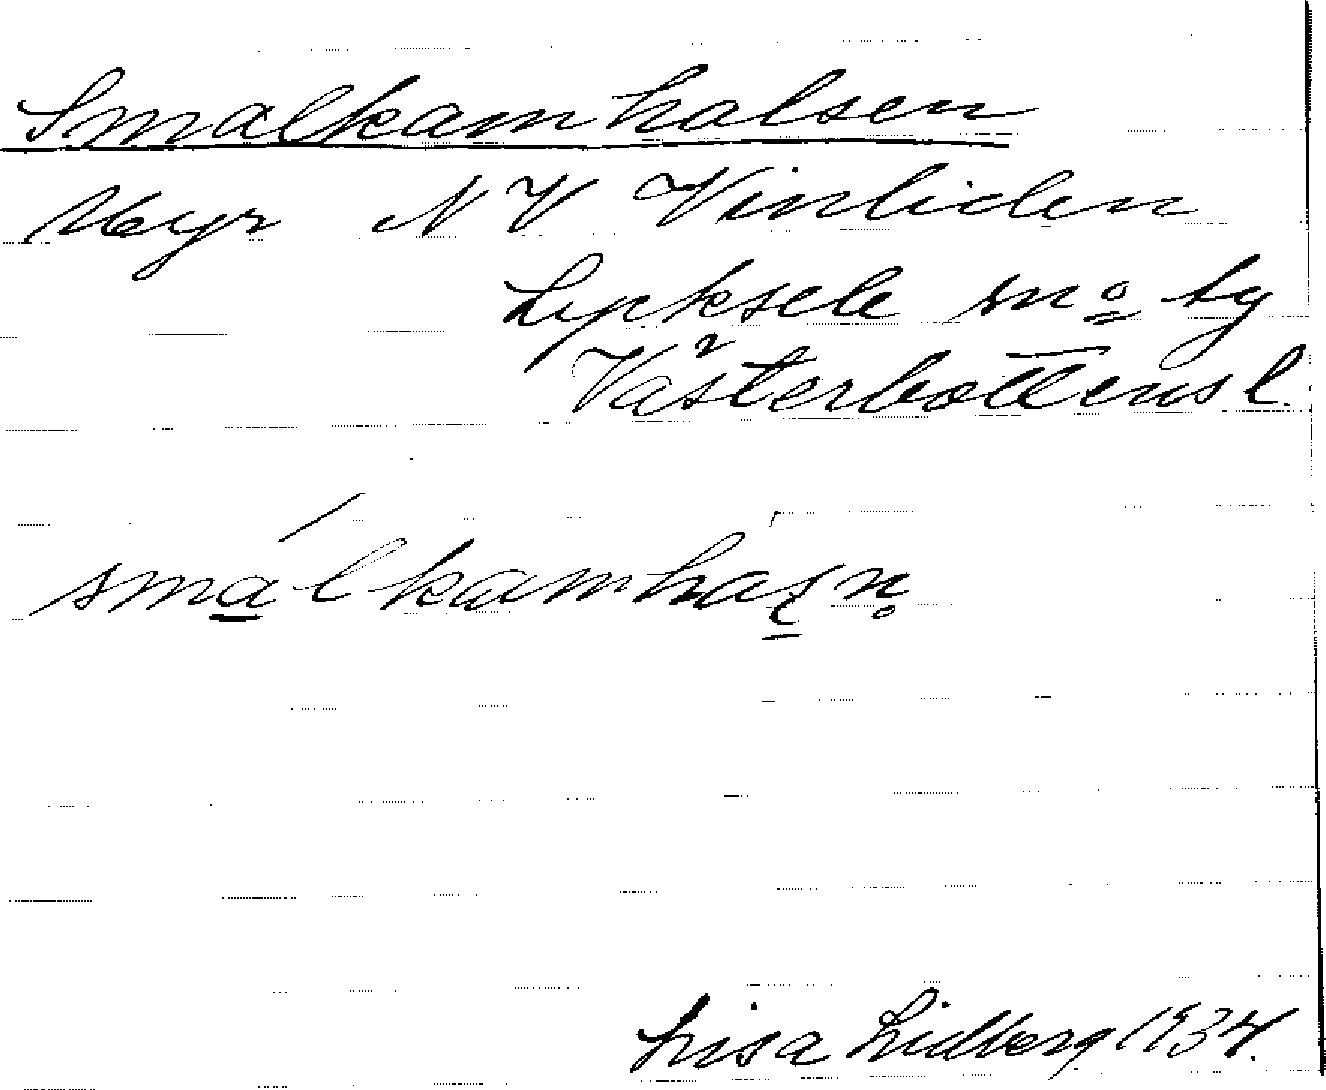 Smalkamhalsen
Myr NV Vinliden
Lycksele sn o by
Västerbottens l.
smalkamhaʂn̥
Lisa Lidberg 1934.